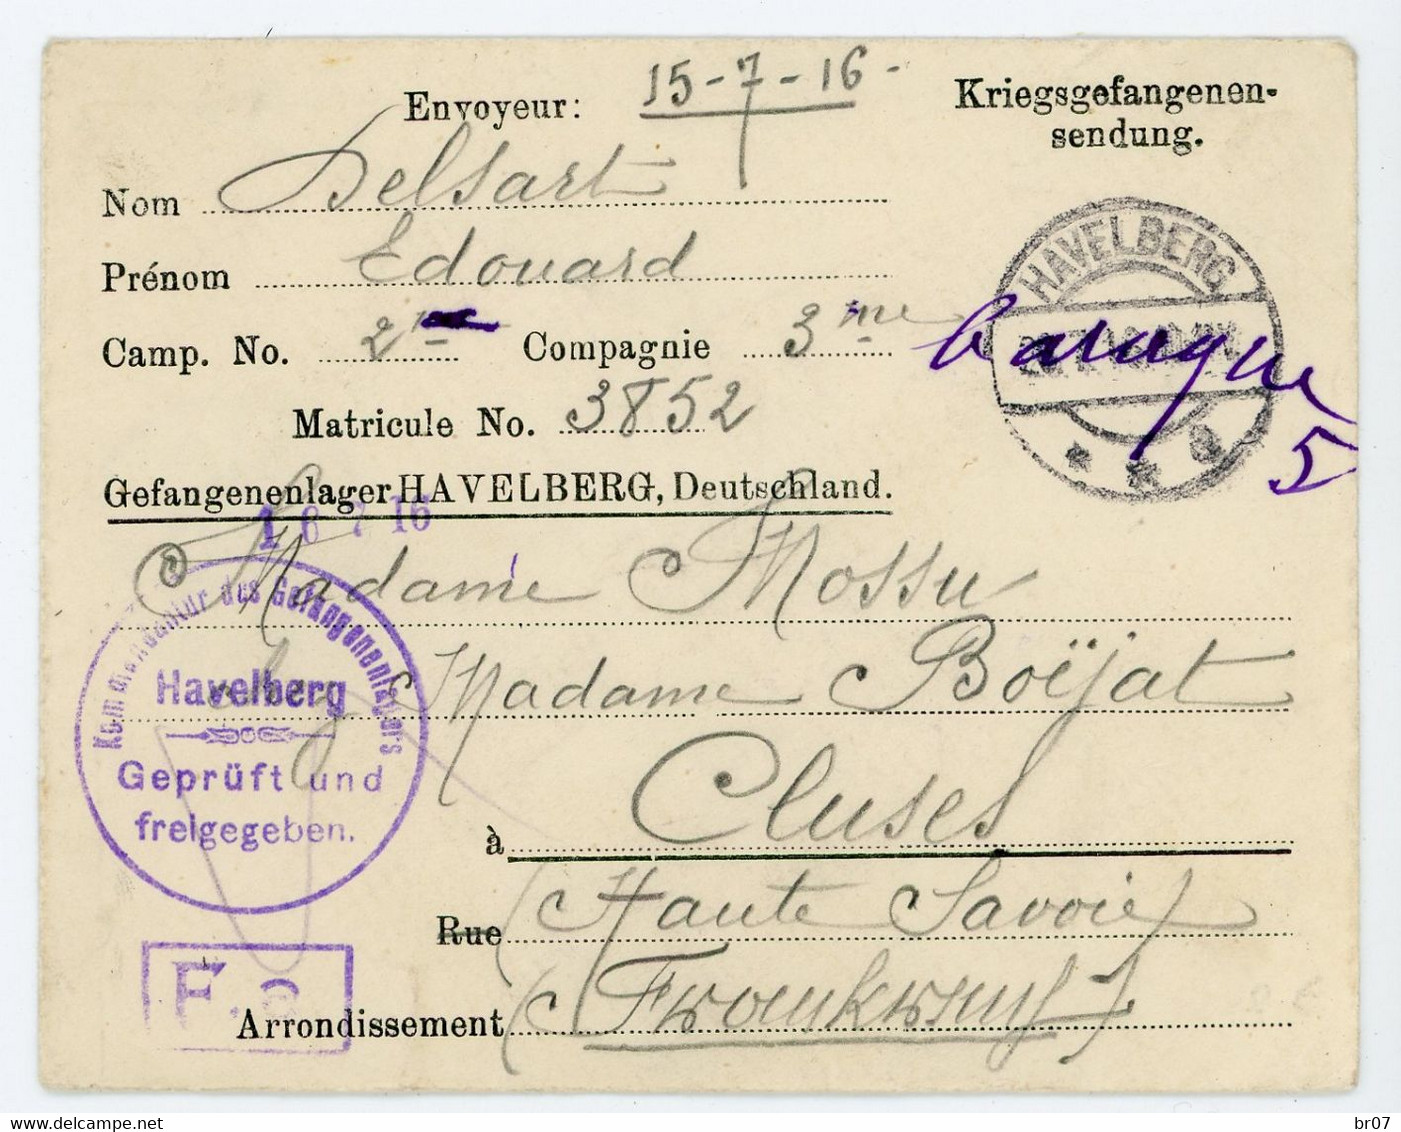 Envoyeur: 15-7-16-
Kriegsgefangenen-
sendung.
Nom Delsart
Prénom Edouard
Camp. No. 2me Compagnie 3me baraque
5
Matricule No. 3852
HAVELBERG
Gefangenenlager HAVELBERG, Deutschland.
16 7 16
Madame Mossu
Madame Boëjat
à Cluses
Rue (Haute Savoie)
Arrondissement (Frankreich)
Kommandantur des Gefangenenlagers
Havelberg
Geprüft und
freigegeben.
F.a
www.delcampe.net
br07